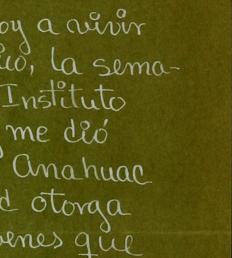 oy a vivir
ico, la sema-
Instituto
me dió
Anahuac
d otorga
venes que